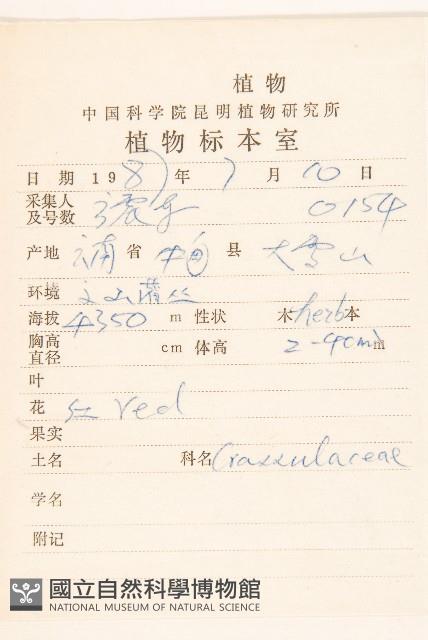 植物
中国科学院昆明植物研究所
植物标本室
日期 1987年7月10日
采集人及号数 0154
产地 省 中甸 县 大雪山
环境 高山灌丛
海拔 4350 m 性状 木 herb 本
胸高直径 cm 体高 2-4cm m
叶
花 红 red
果实
土名 科名 Crassulaceae
学名
附记
國立自然科學博物館
NATIONAL MUSEUM OF NATURAL SCIENCE